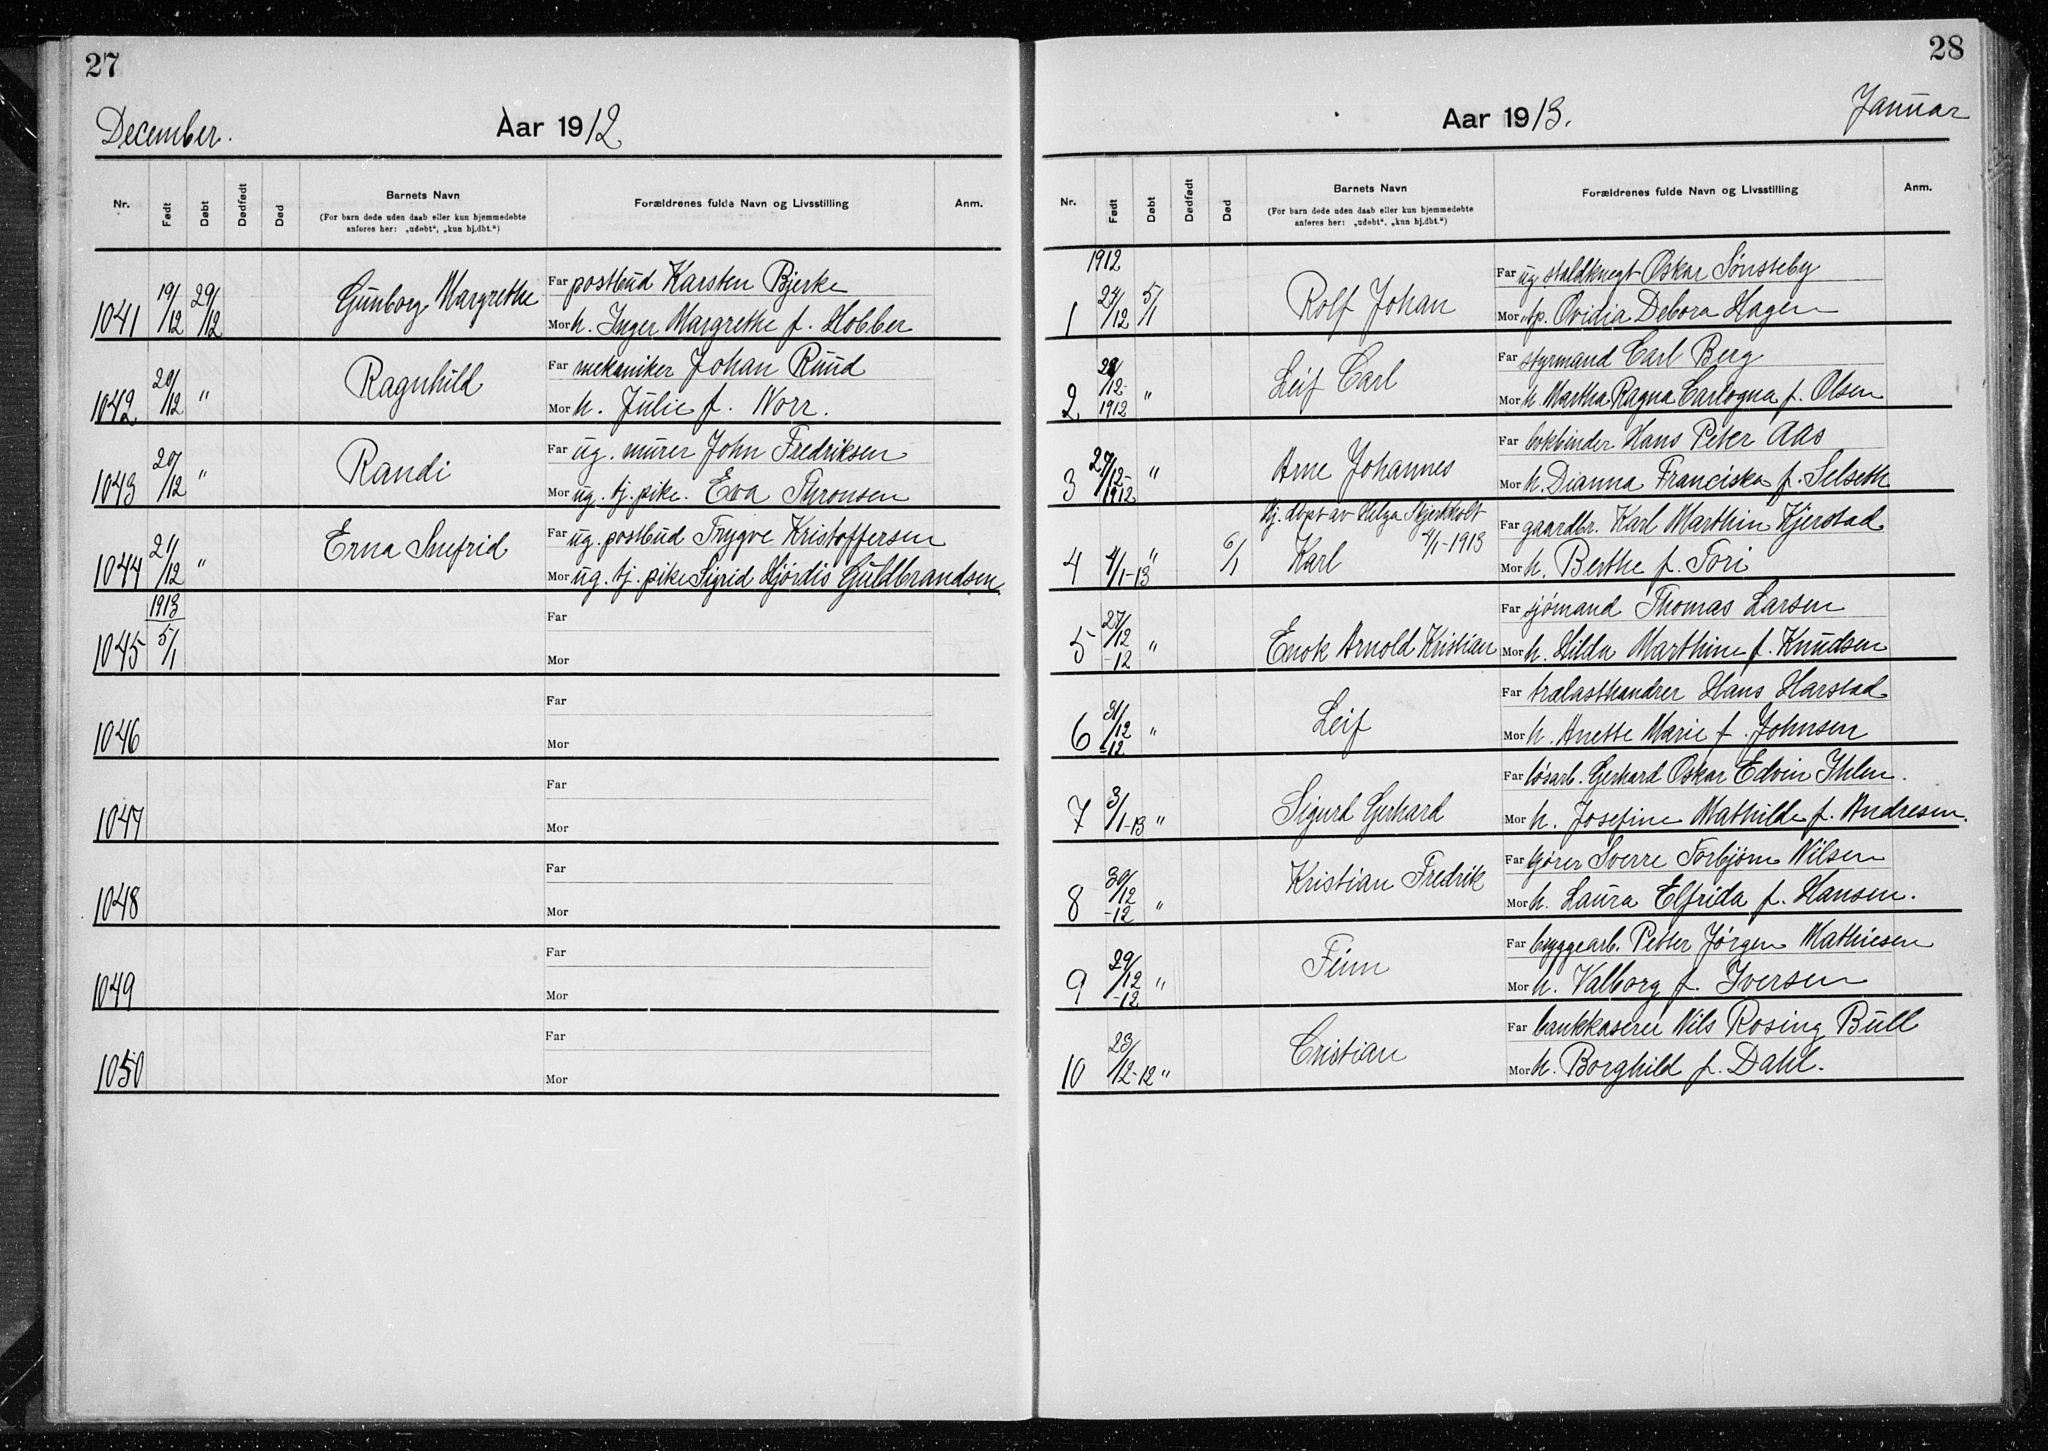 27
December.
Aar 1912
Nr. Født Døbt Dødfødt Død Barnets Navn Forældrenes fulde Navn og Livsstilling Anm.
(For barn døde uden daab eller kun hjemmedøbte
anføres her: „udøbt“, „kun hj.dbt.“)
1041 19/12 29/12 Gunborg Margrethe Far postbud Karsten Bjerke
Mor h. Inger Margrethe f. Hobber
1042 20/12 " Ragnhild Far mekaniker Johan Ruud
Mor h. Julie f. Norr.
1043 20/12 " Randi Far ug. murer John Fredriksen
Mor ug. tj. pike. Eva Thronsen
1044 21/12 " Erna Snefrid Far ug. postbud Trygve Kristoffersen
Mor ug. tj. pike Sigrid Hjørdis Guldbrandsen
1913
1045 5/1 Far
Mor
1046 Far
Mor
1047 Far
Mor
1048 Far
Mor
1049 Far
Mor
1050 Far
Mor
28
Januar
Aar 1913.
Nr. Født Døbt Dødfødt Død Barnets Navn Forældrenes fulde Navn og Livsstilling Anm.
(For barn døde uden daab eller kun hjemmedøbte
anføres her: „udøbt“, „kun hj.dbt.“)
1912
1 24/12 5/1 Rolf Johan Far ug staldknegt Oskar Sønsteby
Mor Ovidia Debora Hagen
2 /12-1912 " Leif Carl Far styrmand Carl Berg
Mor h. Martha Ragna Carlogna f. Olsen
3 27/12-1912 " Arne Johannes Far bokbinder Hans Peter Aas
Mor h. Dianna Franciska f. Selseth
Hj. døpt av Helga Skjerkholt
4/1-1913
4 4/1-13 " 6/1 Karl Far gaardbr. Karl Marthin Kjerstad
Mor h. Berthe f. Tori
5 27/12-12 " Enok Arnold Kristian Far sjømand Thomas Larsen
Mor h. Hilda Marthine f. Knudsen
6 31/12-12 " Leif Far trælasthandrer Hans Harstad
Mor h. Anette Marie f. Johnsen
7 3/1-13 " Sigurd Gerhard Far løsarb. Gerhard Oskar Edvin Ihlen.
Mor h. Josefine Mathilde f. Andresen.
8 30/12-12 " Kristian Fredrik Far kjører Sverre Torbjørn Nilsen
Mor h. Laura Elfrida f. Hansen.
9 29/12-12 " Finn Far byggearb. Petter Jørgen Mathiesen
Mor h. Valborg f. Iversen
10 23/12-12 " Cristian Far bankkaserer Nils Rosing Bull
Mor h. Borghild f. Dahl.